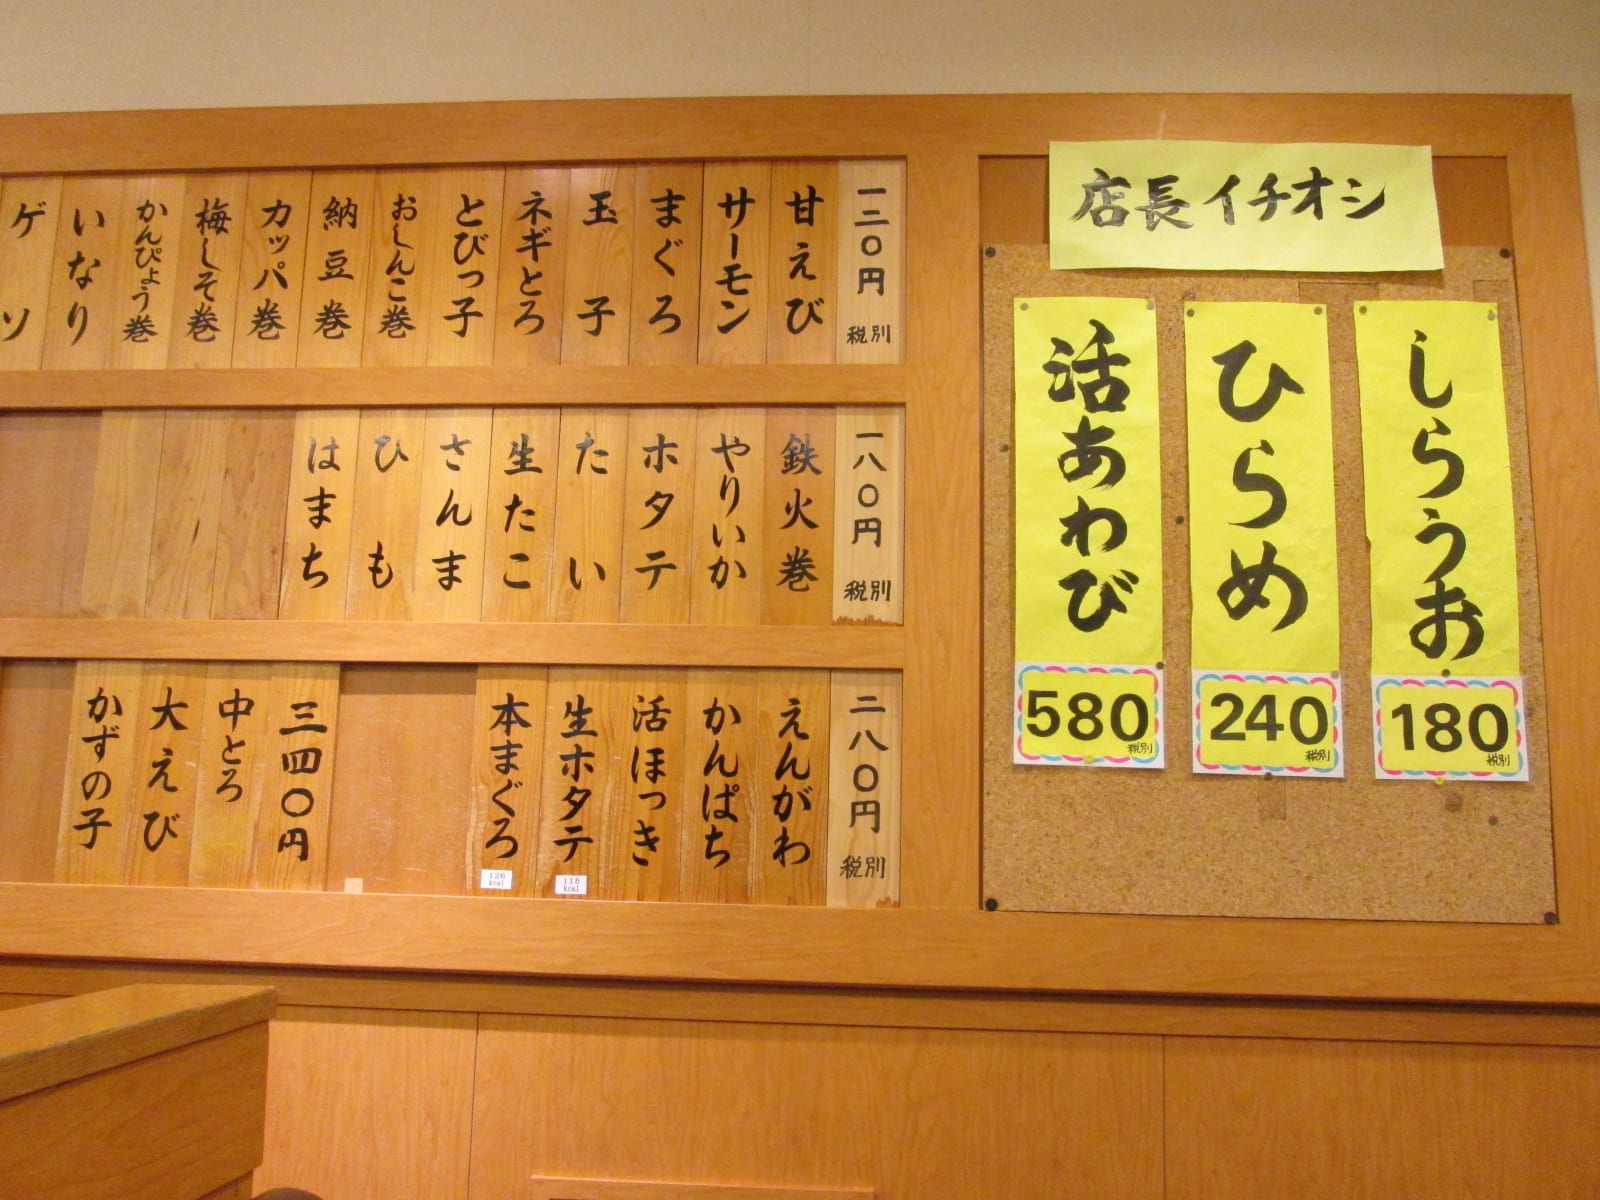 一二〇円 税別
甘えび
サーモン
まぐろ
玉子
ネギとろ
とびっ子
おしんこ巻
納豆巻
カッパ巻
梅しそ巻
かんぴょう巻
いなり
ゲソ
一八〇円 税別
鉄火巻
やりいか
ホタテ
たい
生たこ
さんま
ひも
はまち
二八〇円 税別
えんがわ
かんぱち
活ほっき
生ホタテ
115
kcal
本まぐろ
126
kcal
三四〇円
中とろ
大えび
かずの子
店長イチオシ
しらうお
180
税別
ひらめ
240
税別
活あわび
580
税別